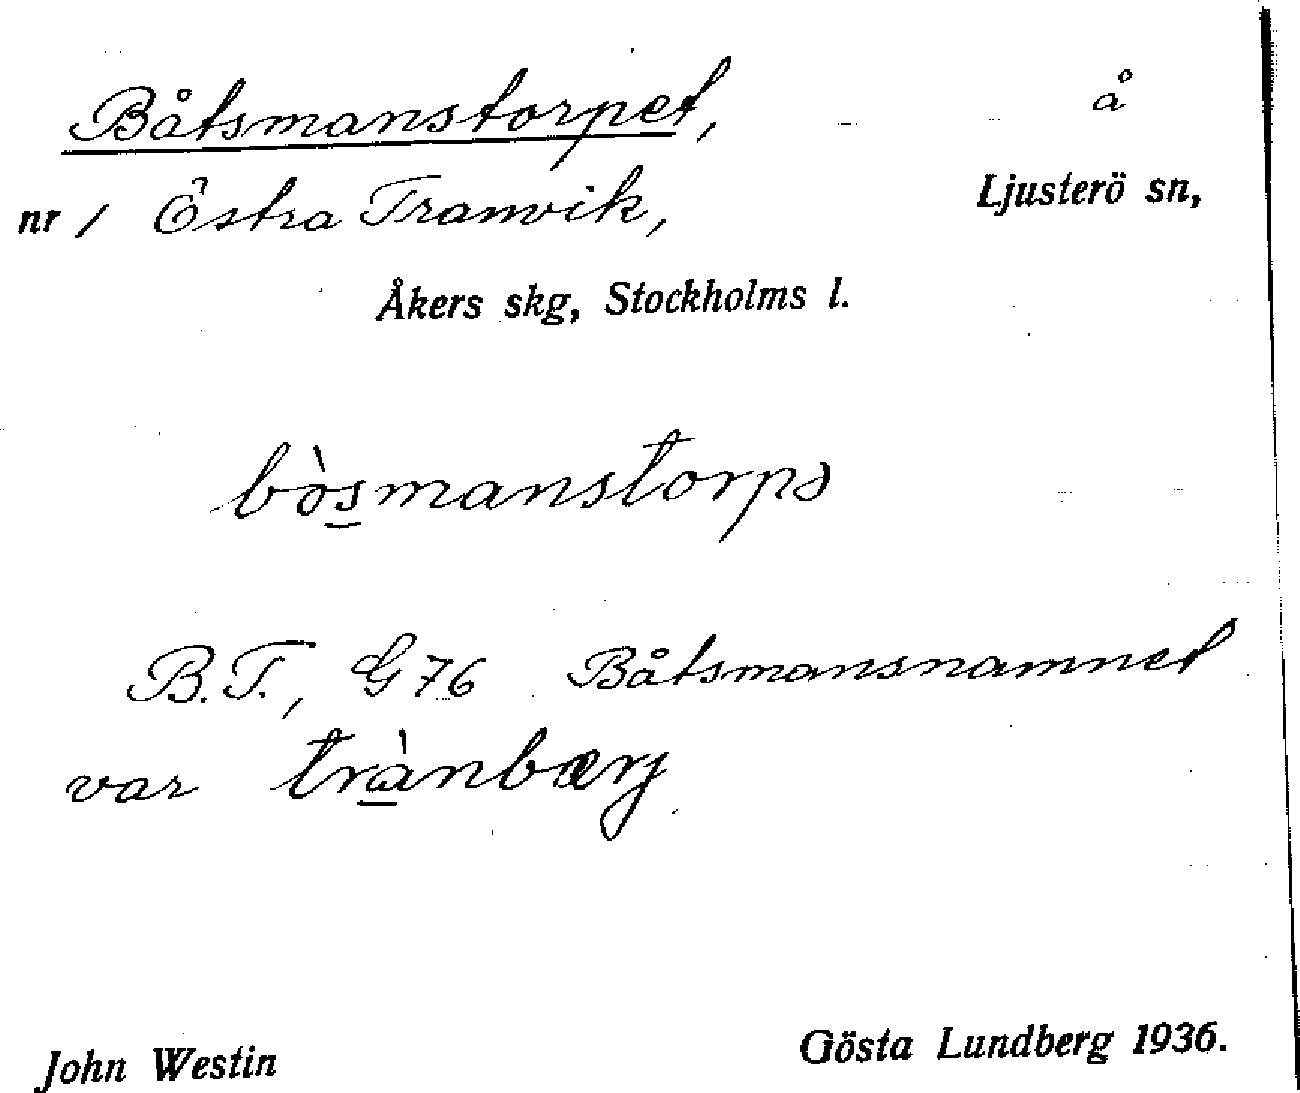 Båtsmanstorpet, å
nr 1 Östra Tranvik, Ljusterö sn,
Åkers skg, Stockholms l.
bòs̲manstorpə
B.T., G 76 Båtsmansnamnet
var trà̲nbærj
John Westin Gösta Lundberg 1936.